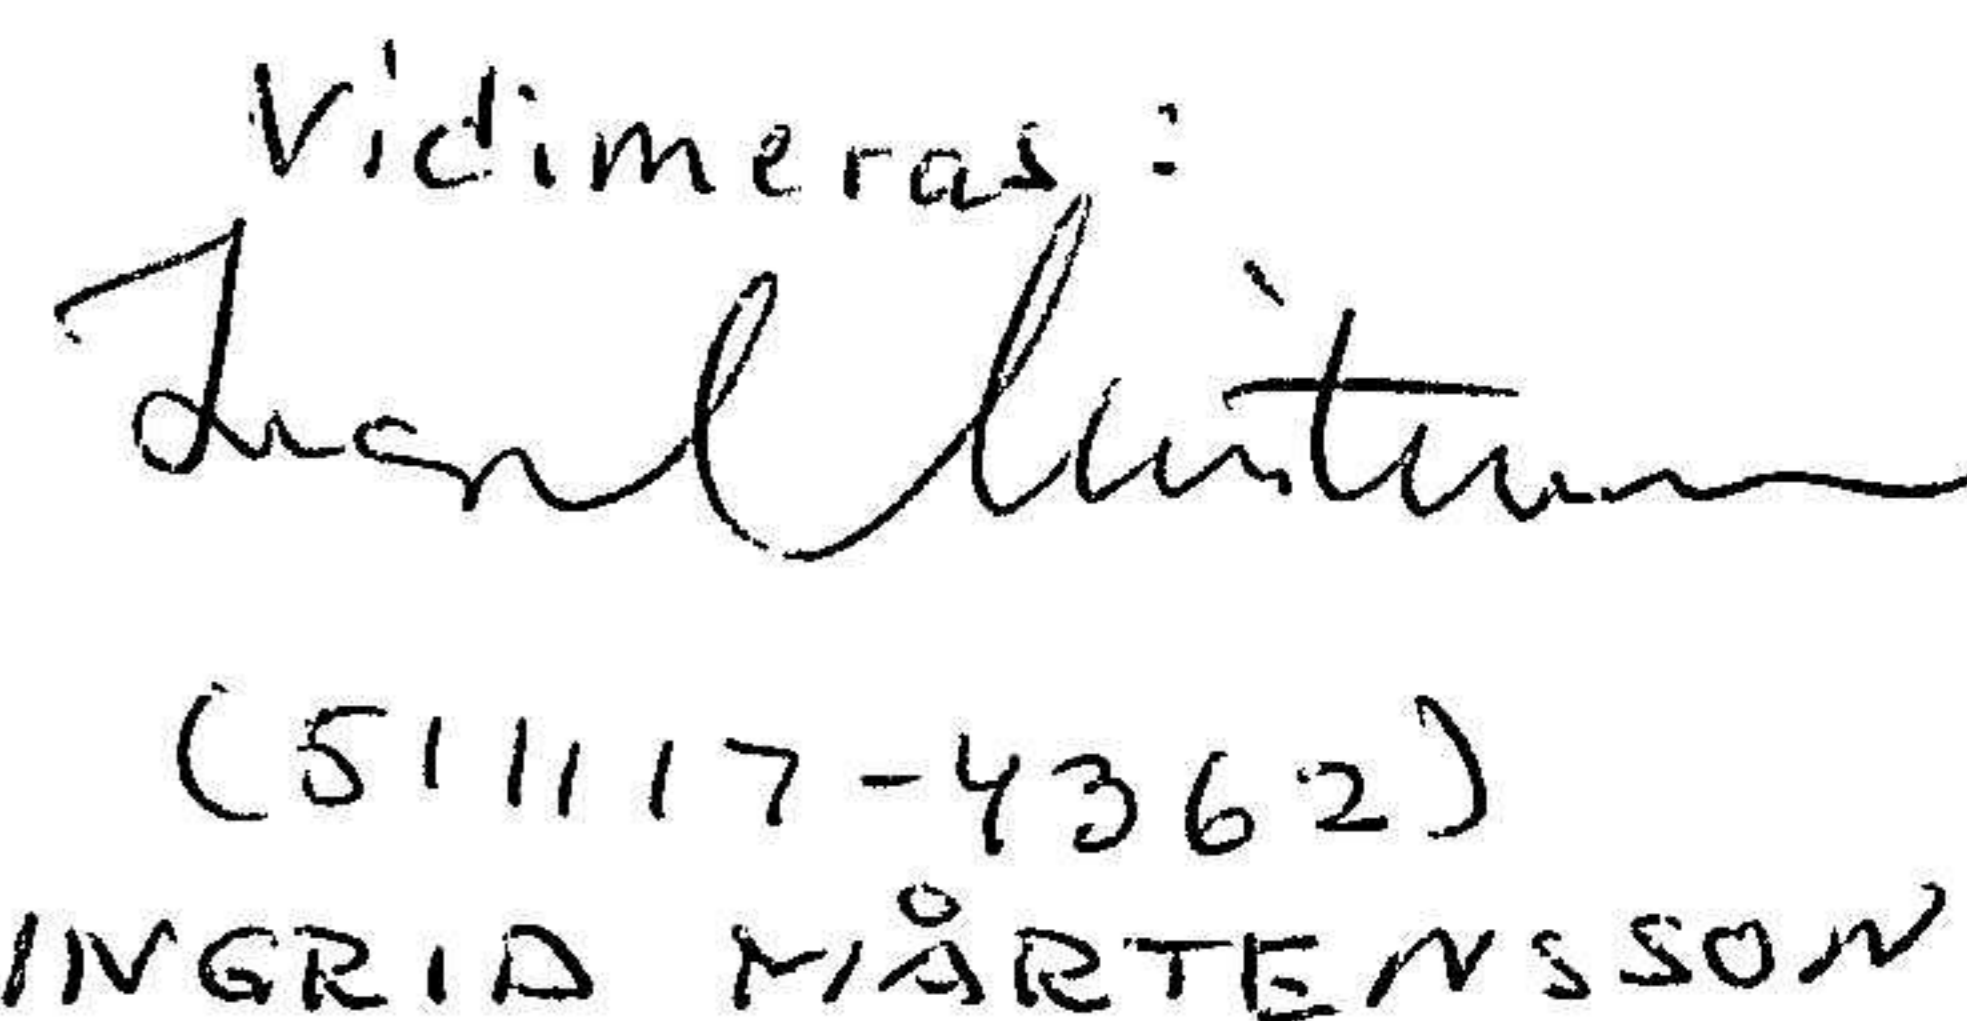 Vidimeras:
Ingrid Mårtensson
(511117-4362)
INGRID MÅRTENSSON